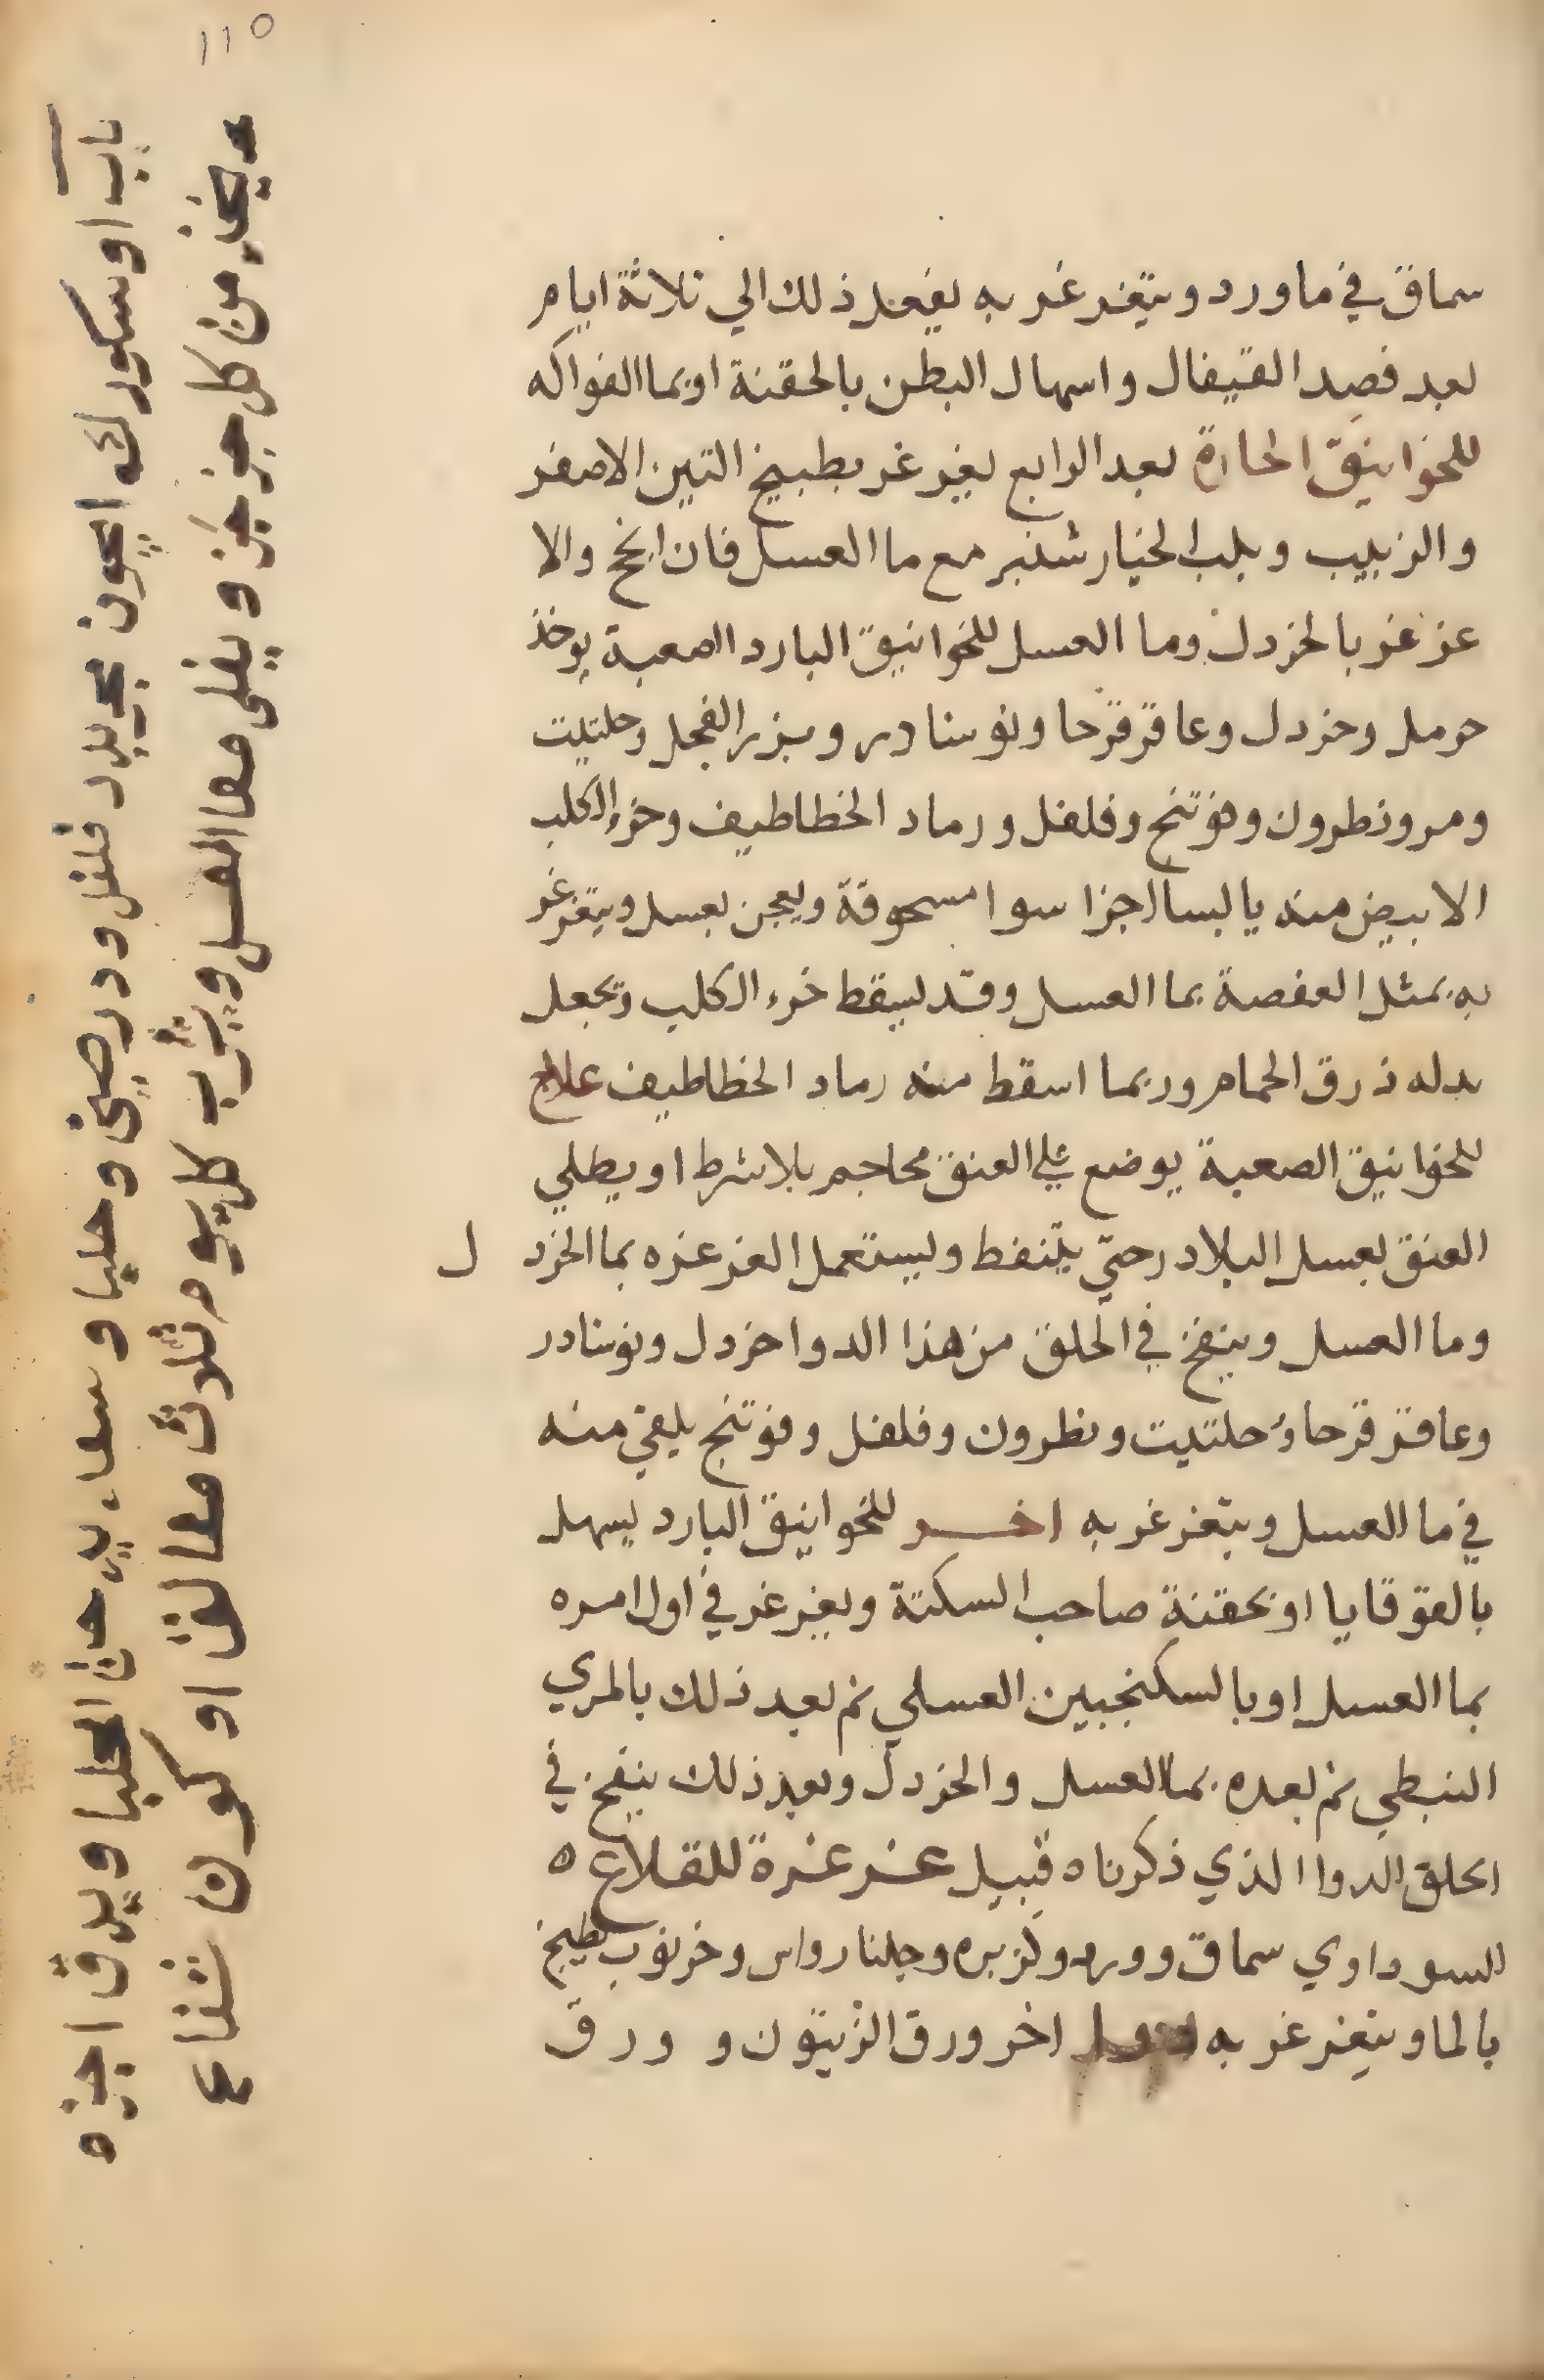 ١١٥
سماق في ما ورد ويتغرغر به يفعل ذلك الي ثلاثة ايام
بعد فصد القيفال واسهال البطن بالحقنة او بما الفواكه
للخوانيق الحارة بعد الرابع يغرغر بطبيخ التين الاصفر
والزبيب وبلب الخيار شنبر مع ما العسل فان انجح والا
غرغر بالخردل وما العسل للخوانيق البارد الصعبة يوخذ
حرمل وخردل وعاقرقرحا ونوشادر وبزر الفجل وحلتيت
ومر ونطرون وفوتنج وفلفل ورماد الخطاطيف وخرء الكلب
الابيض منه يابسا اجزا سوا مسحوقة ويعجن بعسل ويتغرغر
به بمثل العفصة بما العسل وقد يسقط خرء الكلب وتجعل
بدله ذرق الحمام وربما اسقط منه رماد الخطاطيف علاج
للخوانيق الصعبة يوضع علي العنق محاجم بلا شرط او يطلي
العنق بعسل البلادر حتي يتنفط ويستعمل الغرغره بما الخردل
وما العسل وينفخ في الحلق من هذا الدوا خردل ونوشادر
وعاقرقرحا وحلتيت ونطرون وفلفل وفوتنج يلقي منه
في ما العسل ويتغرغر به اخر للخوانيق البارد يسهل
بالقوقايا او بحقنة صاحب السكتة ويغرغر في اول امره
بما العسل او بالسكنجبين العسلي ثم بعد ذلك بالمري
النبطي ثم بعده بما العسل والخردل وبعد ذلك ينفخ في
الحلق الدوا الذي ذكرناه قبيل غرغرة للقلاع ه
السوداوي سماق وورد وكزبره وجلنار واس وخرنوب يطبخ
بالما ويتغرغر به اخر ورق الزيتون و ورق
باب اوسكورك ايچون مجرب در فلفل ودرصيني وحلبا و يدحن الحلبا ويدق اجزه
ويخذ من كل جز جز ويغلى معا العسل ويشرب كل يوم ثلاث معالق او كون شفاع